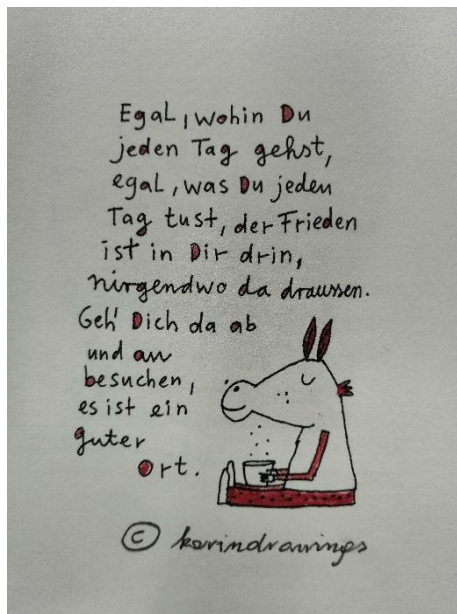 Egal, wohin Du
jeden Tag gehst,
egal, was Du jeden
Tag tust, der Frieden
ist in Dir drin,
nirgendwo da draussen.
Geh' Dich da ab
und an
besuchen,
es ist ein
guter
Ort.
© karindrawings